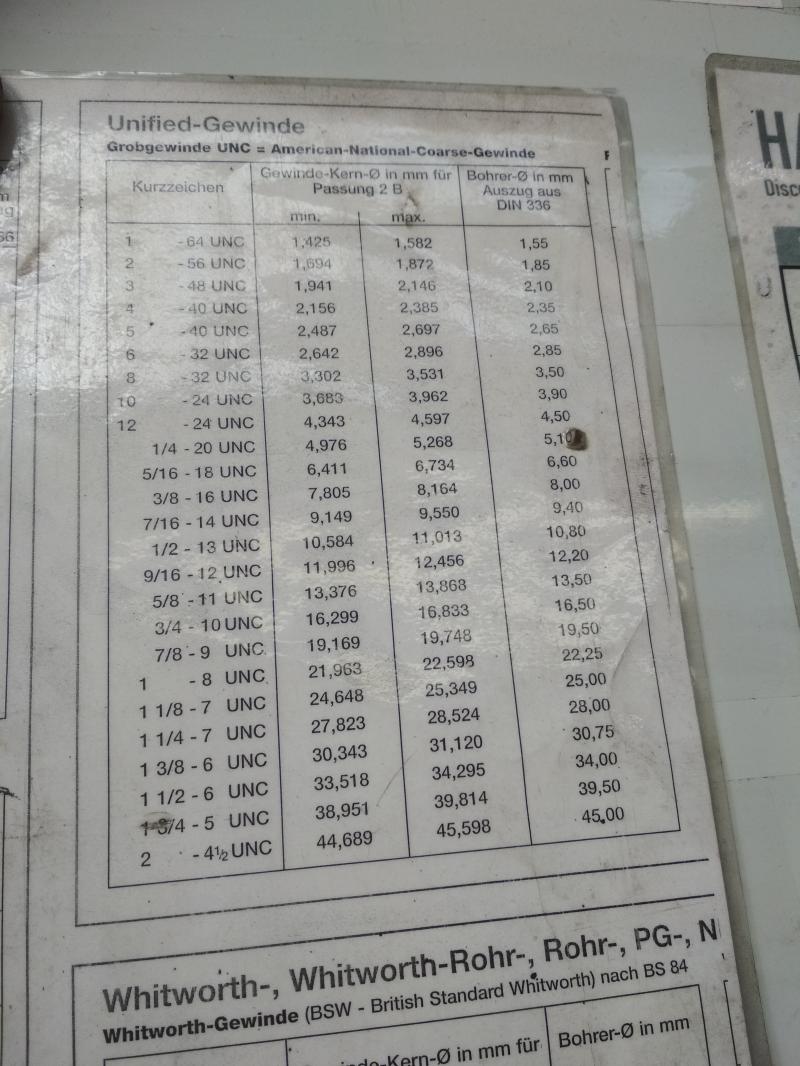 Unified-Gewinde
Grobgewinde UNC = American-National-Coarse-Gewinde
Kurzzeichen Gewinde-Kern-Ø in mm für Passung 2 B min. max. Bohrer-Ø in mm Auszug aus DIN 336
1 - 64 UNC 1,425 1,582 1,55
2 - 56 UNC 1,694 1,872 1,85
3 - 48 UNC 1,941 2,146 2,10
4 - 40 UNC 2,156 2,385 2,35
5 - 40 UNC 2,487 2,697 2,65
6 - 32 UNC 2,642 2,896 2,85
8 - 32 UNC 3,302 3,531 3,50
10 - 24 UNC 3,683 3,962 3,90
12 - 24 UNC 4,343 4,597 4,50
1/4 - 20 UNC 4,976 5,268 5,10
5/16 - 18 UNC 6,411 6,734 6,60
3/8 - 16 UNC 7,805 8,164 8,00
7/16 - 14 UNC 9,149 9,550 9,40
1/2 - 13 UNC 10,584 11,013 10,80
9/16 - 12 UNC 11,996 12,456 12,20
5/8 - 11 UNC 13,376 13,868 13,50
3/4 - 10 UNC 16,299 16,833 16,50
7/8 - 9 UNC 19,169 19,748 19,50
1 - 8 UNC 21,963 22,598 22,25
1 1/8 - 7 UNC 24,648 25,349 25,00
1 1/4 - 7 UNC 27,823 28,524 28,00
1 3/8 - 6 UNC 30,343 31,120 30,75
1 1/2 - 6 UNC 33,518 34,295 34,00
1 3/4 - 5 UNC 38,951 39,814 39,50
2 - 4½ UNC 44,689 45,598 45,00
Whitworth-, Whitworth-Rohr-, Rohr-, PG-, N
Whitworth-Gewinde (BSW - British Standard Whitworth) nach BS 84
-Kern-Ø in mm für Bohrer-Ø in mm